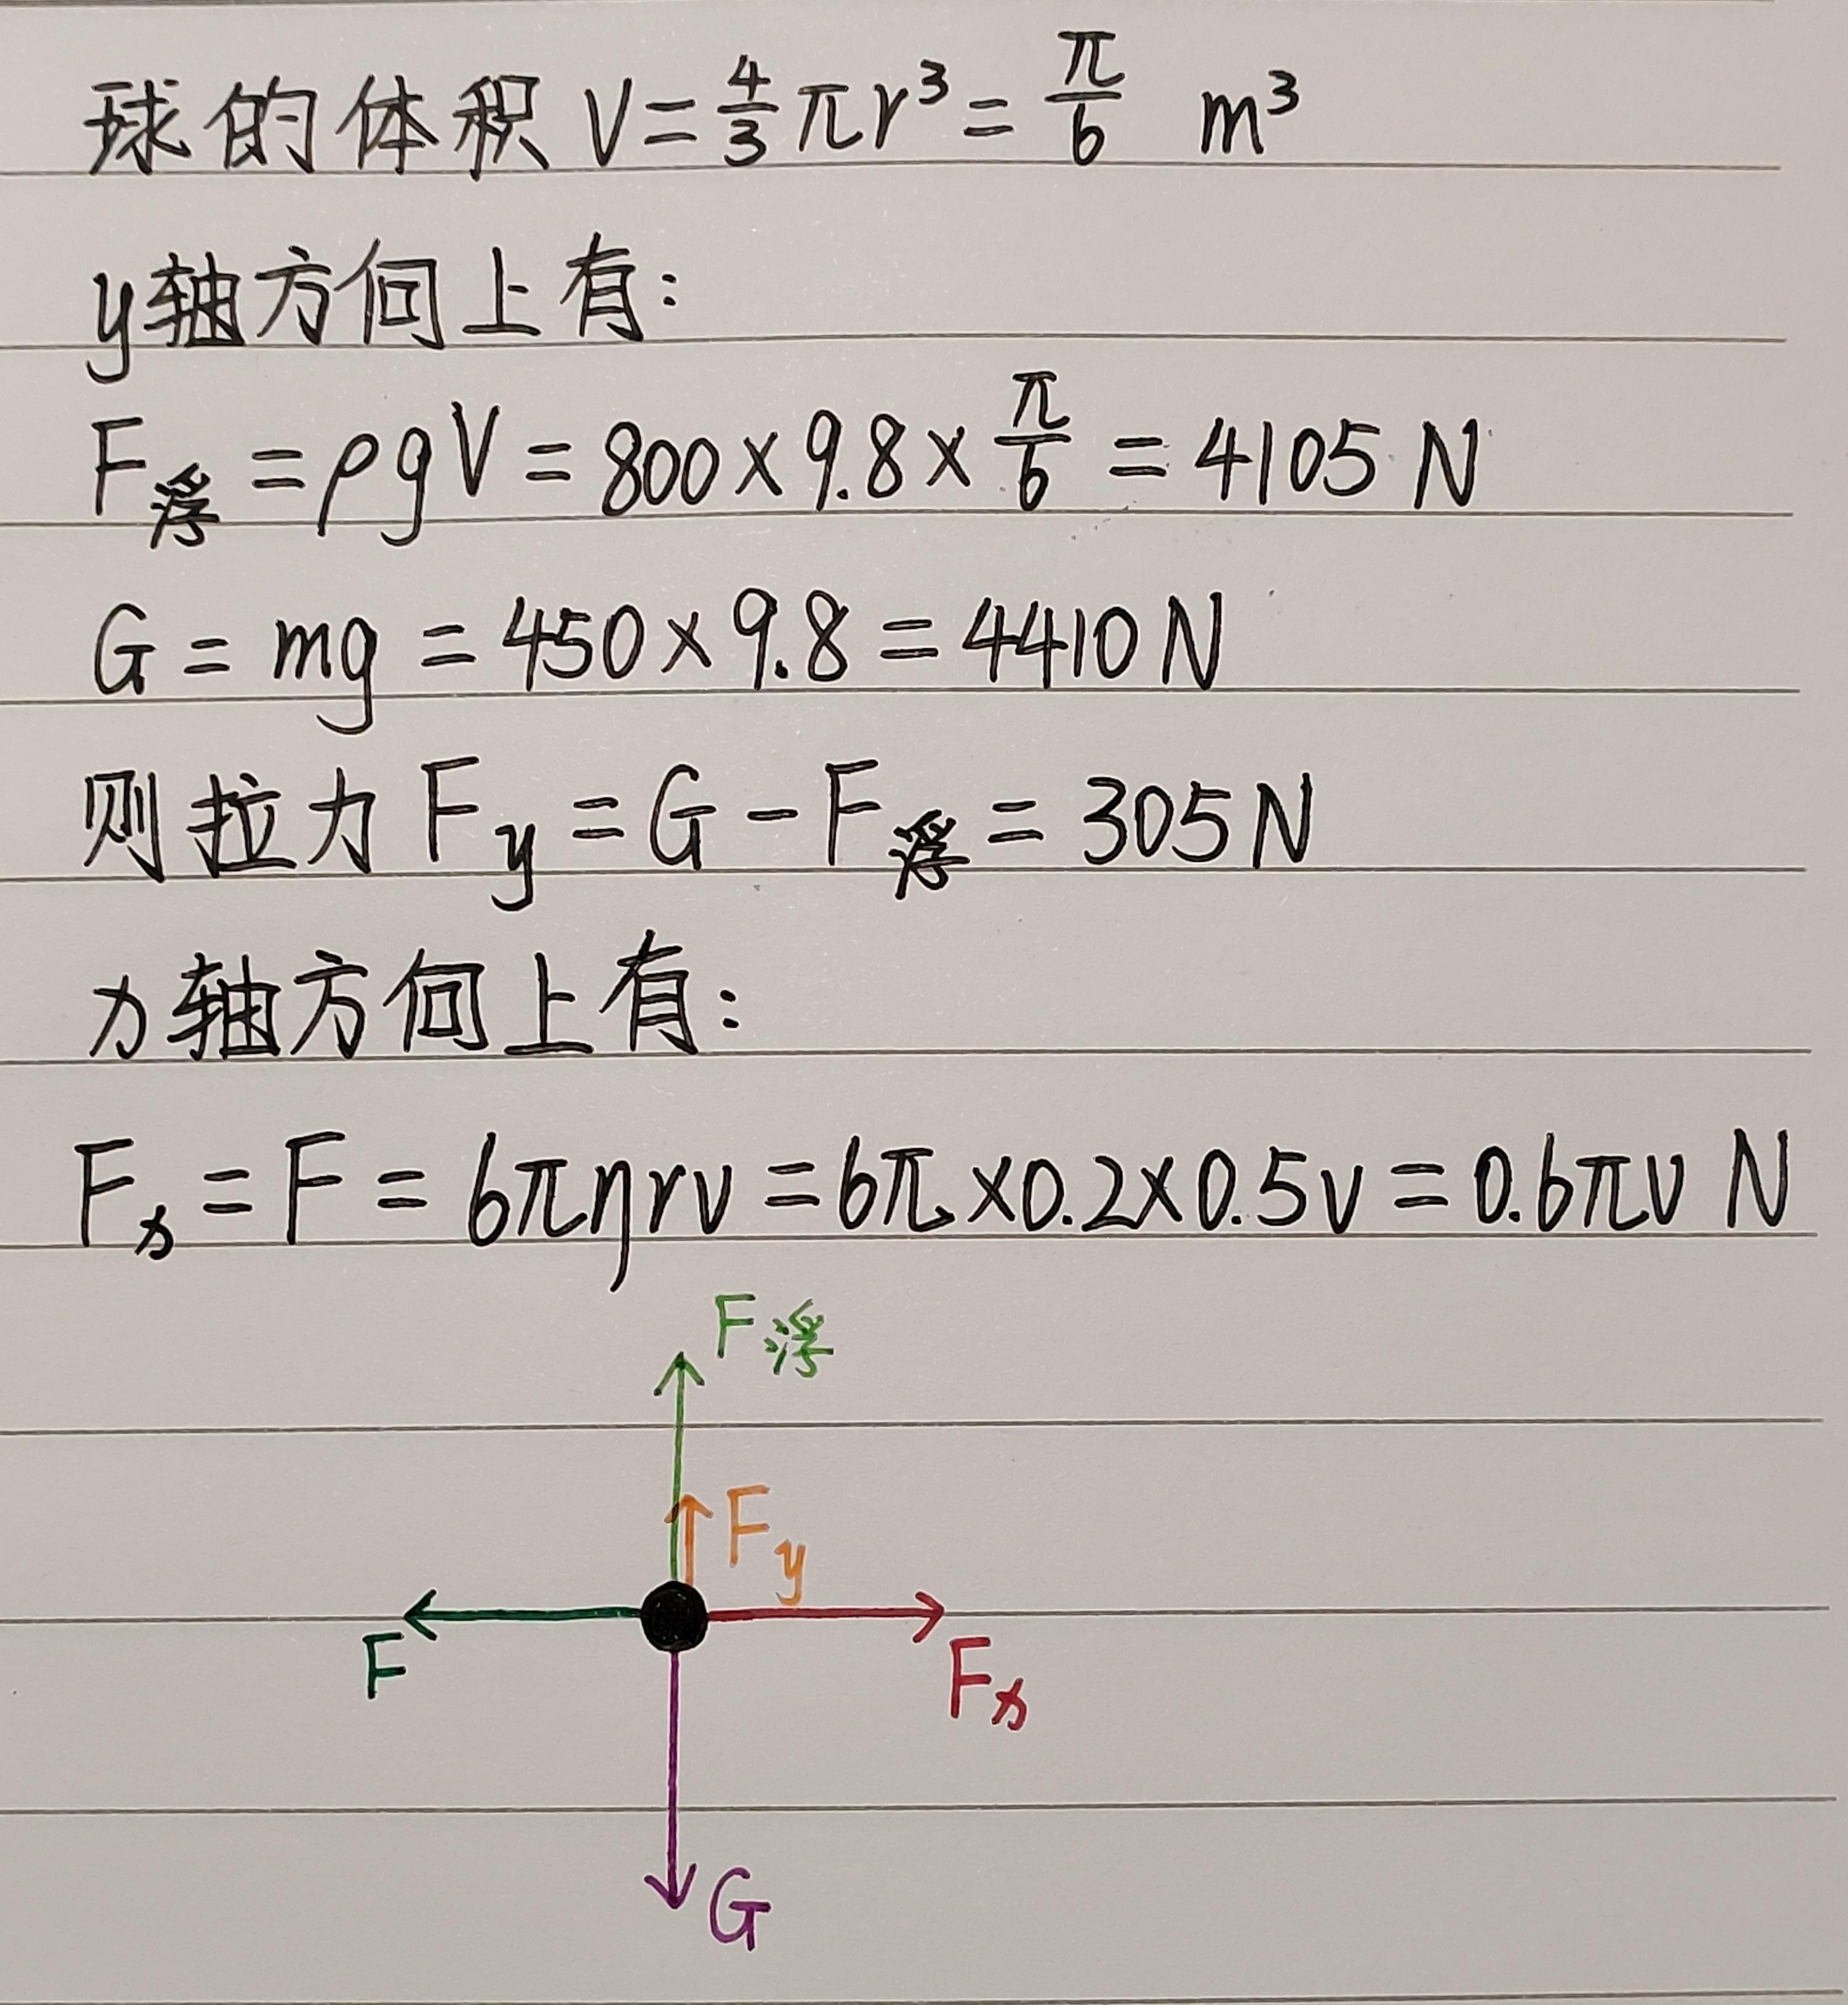 球的体积 V=4/3 πr³=π/6 m³
y轴方向上有:
F浮=ρgV=800×9.8×π/6=4105N
G=mg=450×9.8=4410N
则拉力Fy=G-F浮=305N
x轴方向上有:
Fx=F=6πηrv=6π×0.2×0.5v=0.6πv N
F浮
Fy
F
Fx
G